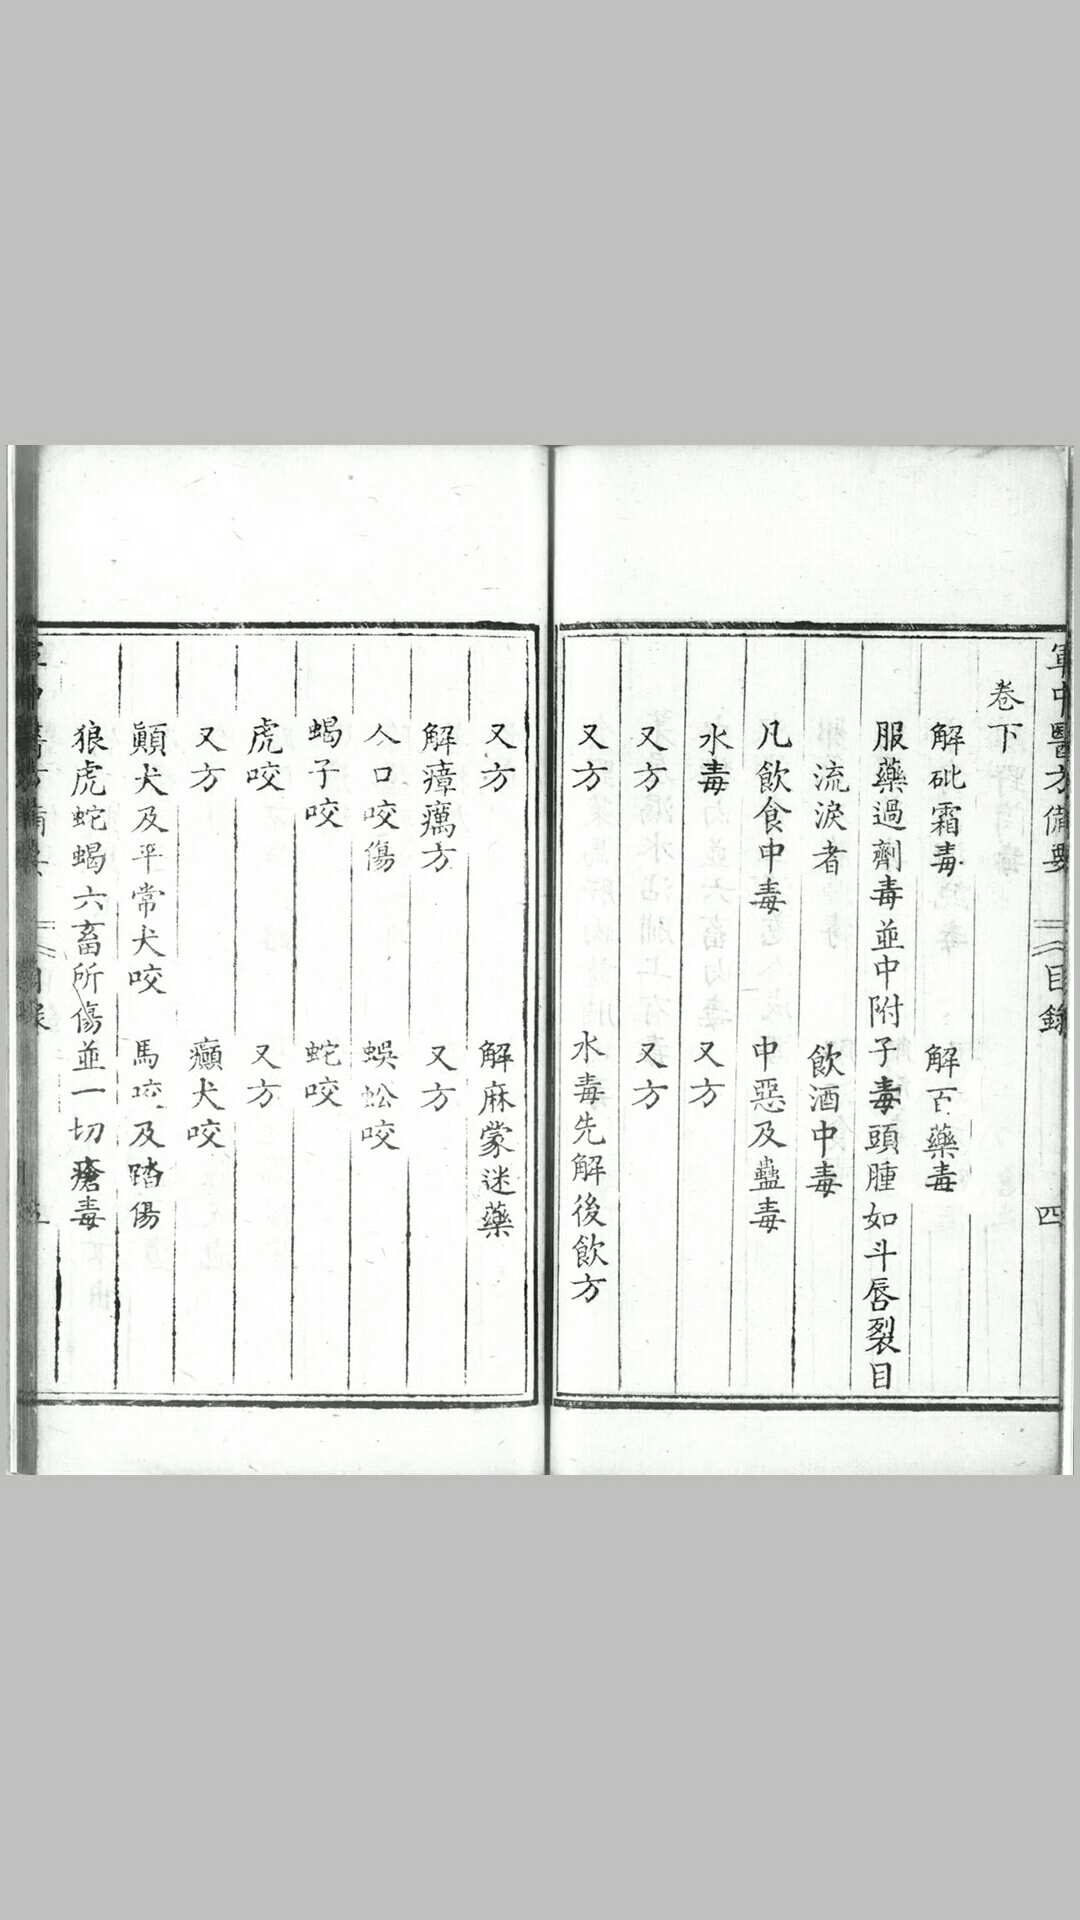 軍中醫方備要
目錄
四
卷下
解砒霜毒　解百藥毒
服藥過劑毒並中附子毒頭腫如斗唇裂目
流淚者　飲酒中毒
凡飲食中毒　中惡及蠱毒
水毒　又方
又方　又方
又方　水毒先解後飲方
又方　解麻蒙迷藥
解瘴癘方　又方
人口咬傷　蜈蚣咬
蝎子咬　蛇咬
虎咬　又方
又方　癲犬咬
顛犬及平常犬咬　馬咬及踏傷
狼虎蛇蝎六畜所傷並一切瘡毒